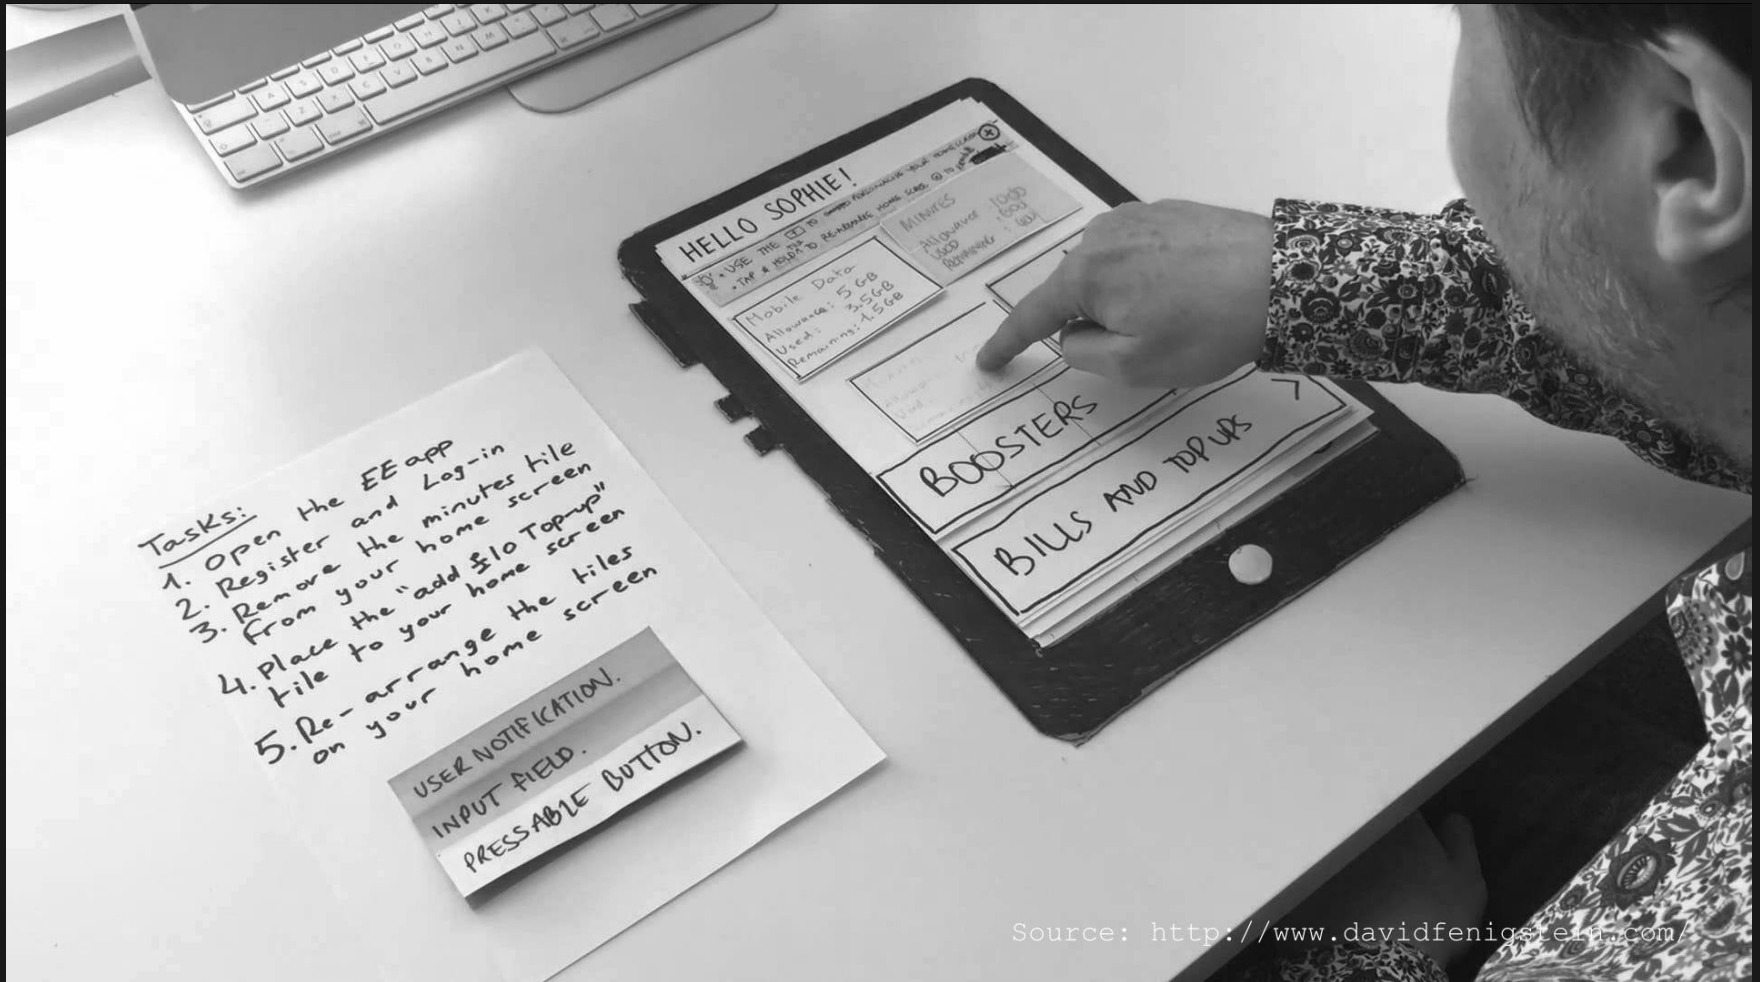 HELLO SOPHIE!
• USE THE TO PERSONALISE YOUR HOMESCREEN
• TAP & HOLD TO RE-ARRANGE HOME SCREEN
Mobile Data
Allowance: 5 GB
Used: 3.5GB
Remaining: 1.5GB
MINUTES
Allowance 1000
USED 600
REMAINING: 400
BOOSTERS
BILLS AND TOP UPS >
Tasks:
1. Open the EE app
2. Register and Log-in
3. Remove the minutes tile
from your home screen
4. Place the "add £10 Top-up"
tile to your home screen
5. Re-arrange the tiles
on your home screen
USER NOTIFICATION.
INPUT FIELD.
PRESSABLE BUTTON.
Source: http://www.davidfenigstein.com/